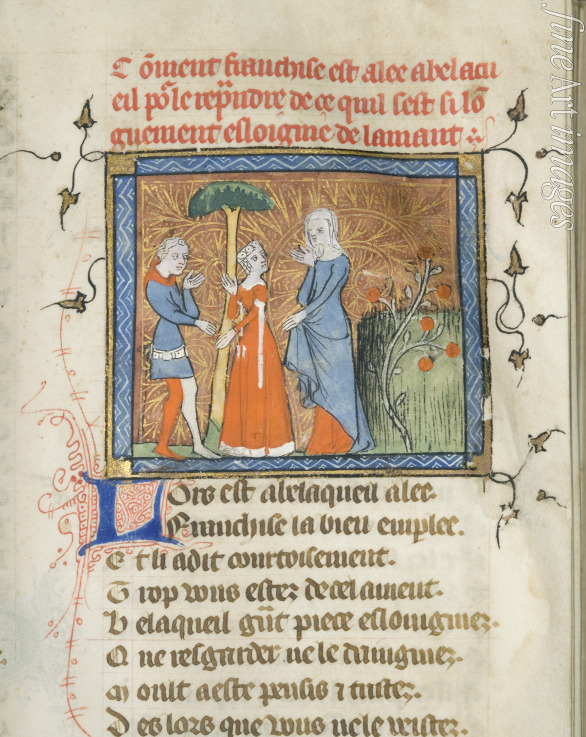 Cōment franchise est alee a bel acu
eil po᷑ le rep̃ndre de ce quil sest si lō
guement esloigine de lamant
Lors est a belaqueil alee.
Franchise la bien emplee.
Et li a dit courtoisement.
Trop vous estez de cel ament.
Belaqueil gñt piece eslongniez.
Que resgarder ne le daingniez.
Moult a este pensis ⁊ tristez.
Des lors que vous ne le veistez.
fine Art images